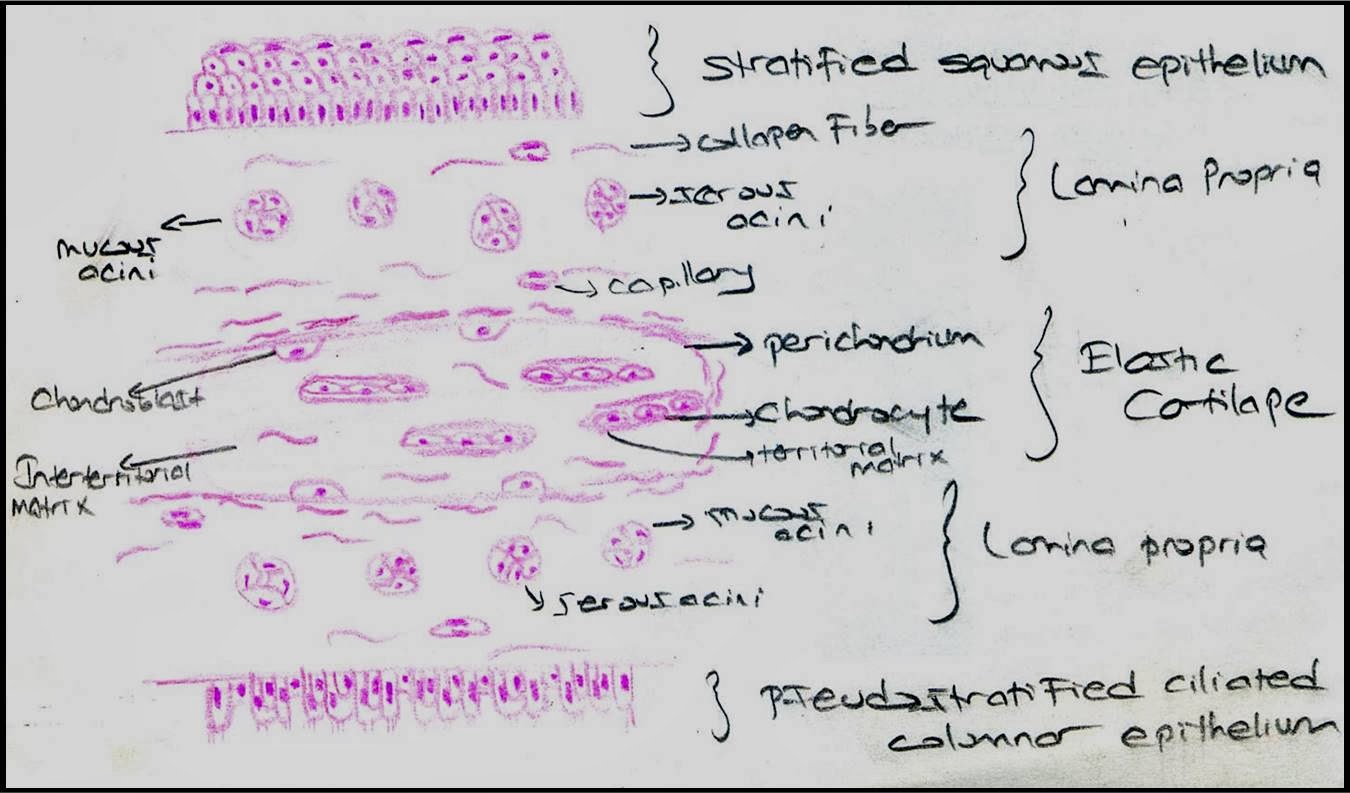 stratified squamous epithelium
collagen Fiber
Lamina Propria
serous
acini
mucous
acini
capillary
perichondrium
Elastic
Cartilage
Chondroblast
Chondrocyte
territorial
matrix
Interterritorial
matrix
mucous
acini
Lamina propria
serous acini
pseudostratified ciliated
columnar epithelium